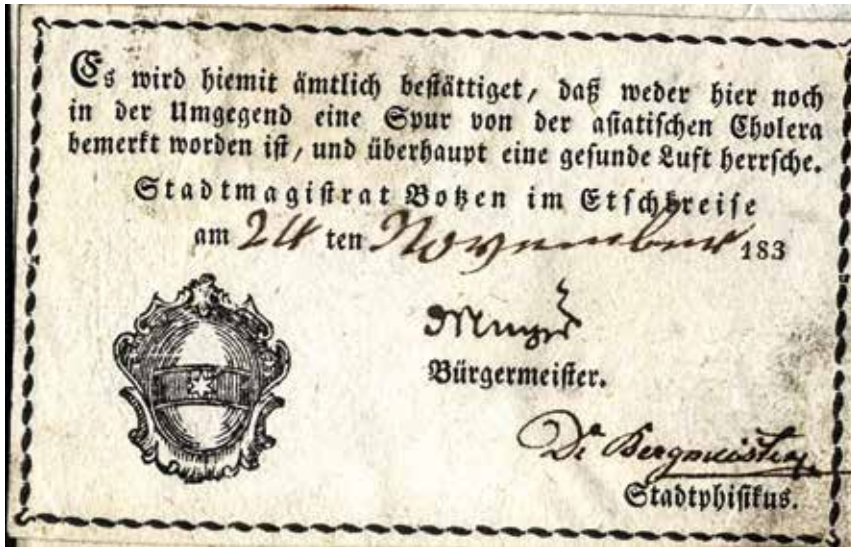 Es wird hiemit ämtlich bestättiget, daß weder hier noch
in der Umgegend eine Spur von der asiatischen Cholera
bemerkt worden ist, und überhaupt eine gesunde Luft herrsche.
Stadtmagistrat Botzen im Etschkreise
am 24 ten November 183
Bürgermeister.
Dr. Bergmeister
Stadtphisikus.